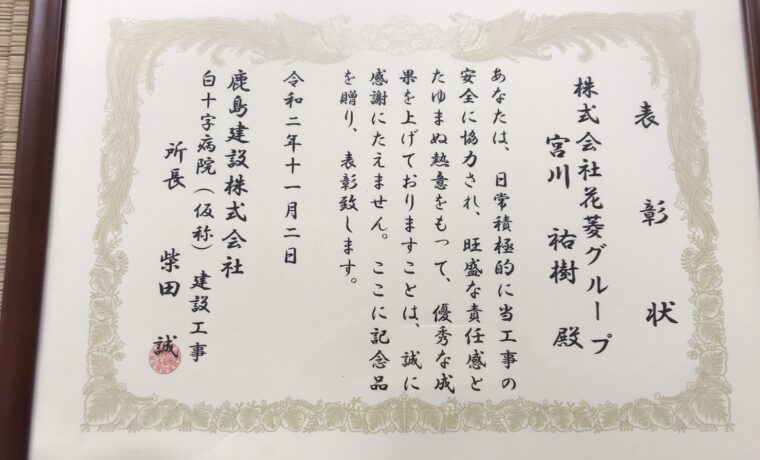 表彰状
株式会社花菱グループ
宮川 祐樹 殿
あなたは、日常積極的に当工事の
安全に協力され、旺盛な責任感と
たゆまぬ熱意をもって、優秀な成
果を上げておりますことは、誠に
感謝にたえません。ここに記念品
を贈り、表彰致します。
令和二年十一月二日
鹿島建設株式会社
白十字病院（仮称）建設工事
所長 柴田 誠